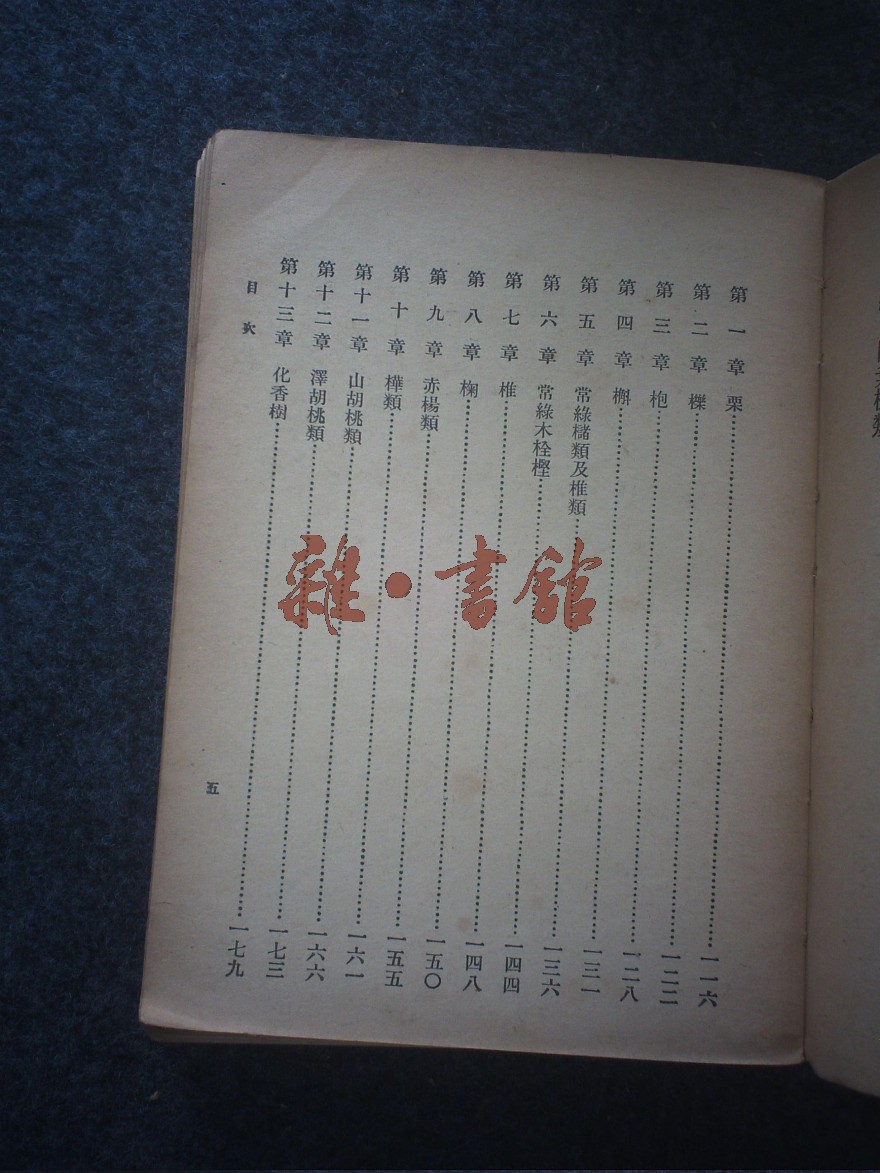 第一章 栗……一一六
第二章 櫟……一二二
第三章 枹……一二八
第四章 槲……一三一
第五章 常綠櫧類及椎類……一三六
第六章 常綠木栓樫……一四四
第七章 椎……一四八
第八章 椈……一五〇
第九章 赤楊類……一五五
第十章 樺類……一六一
第十一章 山胡桃類……一六六
第十二章 澤胡桃類……一七三
第十三章 化香樹……一七九
目次
五
雜·書館